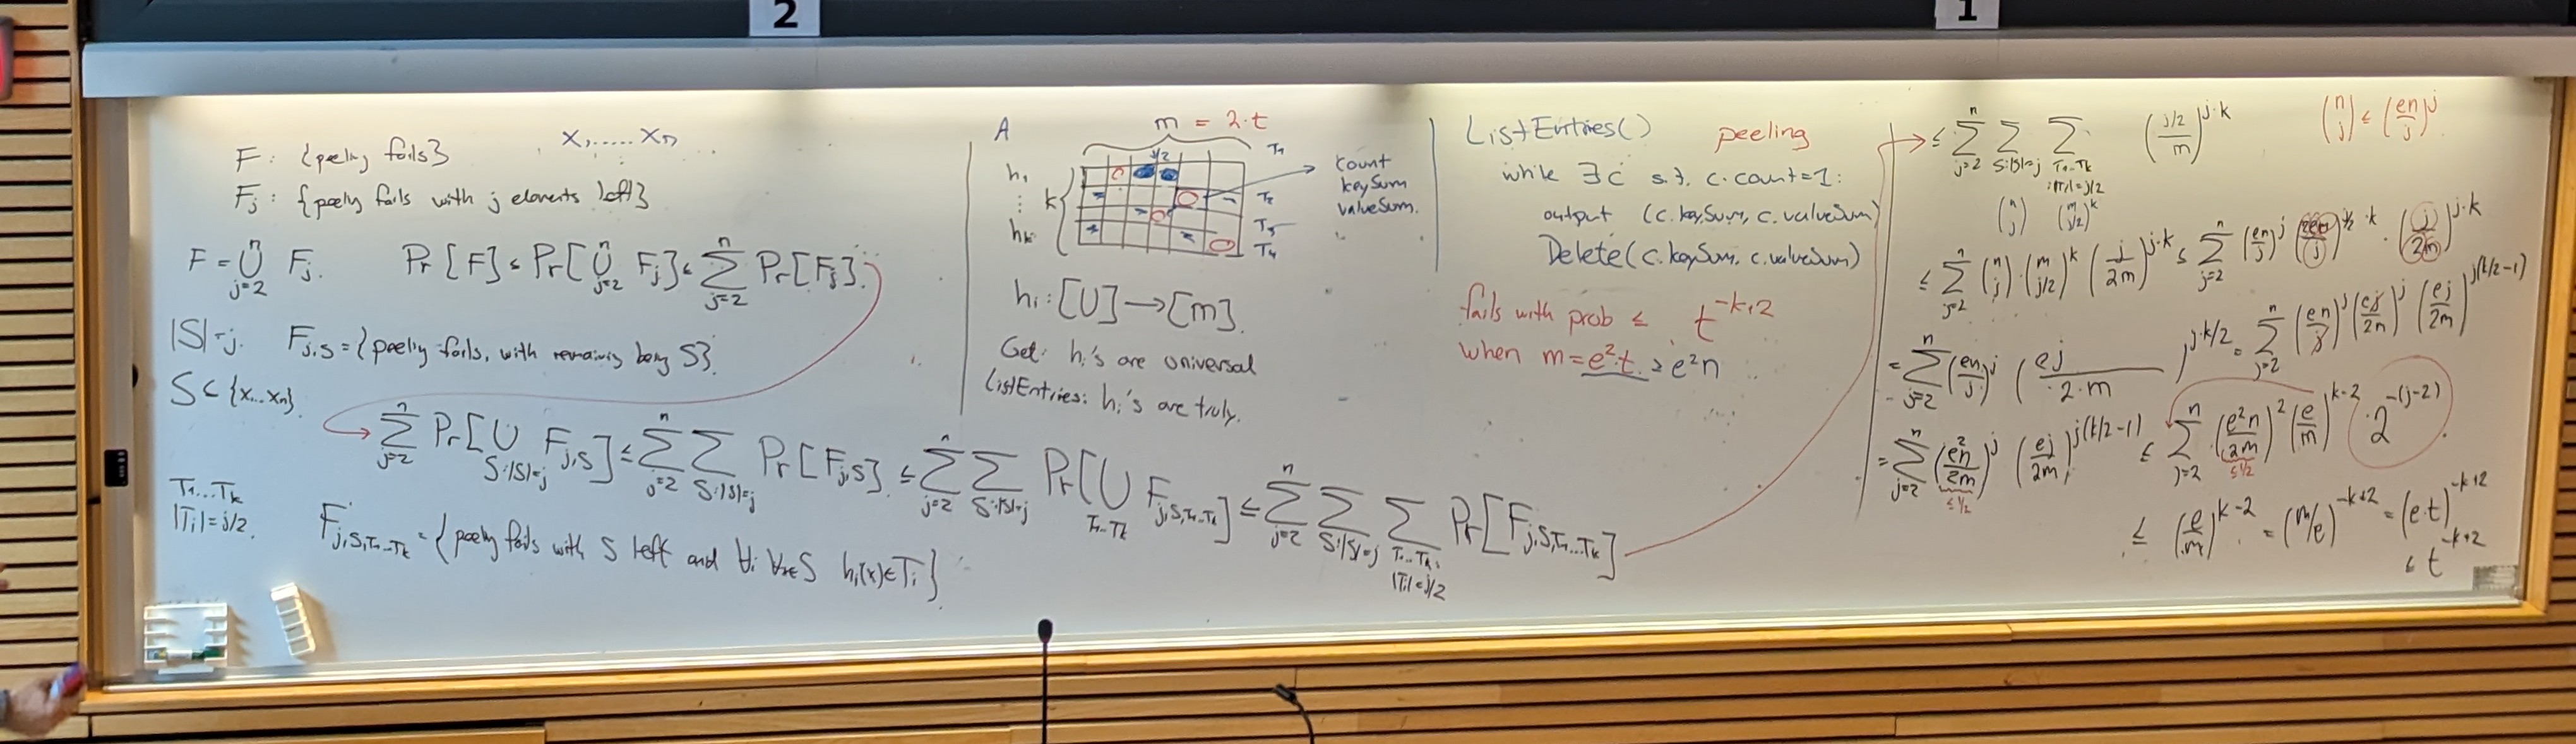 2
1
F: {peeling fails}
x₁, ..... xₙ
Fⱼ: {peeling fails with j elements left}
F = ∪_{j=2}^{n} Fⱼ. Pr[F] ≤ Pr[∪_{j=2}^{n} Fⱼ] ≤ Σ_{j=2}^{n} Pr[Fⱼ].
|S|=j. F_{j,S} = {peeling fails, with remaining being S}.
S ⊂ {x...xₙ}.
Σ_{j=2}^{n} Pr[∪_{S:|S|=j} F_{j,S}] ≤ Σ_{j=2}^{n} Σ_{S:|S|=j} Pr[F_{j,S}] ≤ Σ_{j=2}^{n} Σ_{S:|S|=j} Pr[∪_{T₁...Tₖ} F_{j,S,T₁...Tₖ}] ≤ Σ_{j=2}^{n} Σ_{S:|S|=j} Σ_{T₁...Tₖ, |Tᵢ|=j/2} Pr[F_{j,S,T₁...Tₖ}]
T₁...Tₖ
|Tᵢ|=j/2.
F_{j,S,T₁...Tₖ} = {peeling fails with S left and ∀i ∀x∈S hᵢ(x)∈Tᵢ}
A
m = 2·t
j/2
h₁
⋮
hₖ
k
T₁
T₂
T₃
T₄
count
keySum
valueSum.
hᵢ: [U] → [m].
Get: hᵢ's are universal
ListEntries: hᵢ's are truly.
ListEntries() peeling
while ∃c s.t. c.count=1:
output (c.keySum, c.valueSum)
Delete(c.keySum, c.valueSum)
fails with prob ≤ t^{-k+2}
when m=e²·t ≥ e²n
≤ Σ_{j=2}^{n} Σ_{S:|S|=j} Σ_{T₁...Tₖ : |Tᵢ|=j/2} ((j/2)/m)^{j·k}
(n choose j) ≤ (en/j)^j
(n choose j) (m choose j/2)^k
≤ Σ_{j=2}^{n} (n choose j)·(m choose j/2)^k (j/2m)^{j·k} ≤ Σ_{j=2}^{n} (en/j)^j (2em/j)^{j/2·k} · (j/2m)^{j·k}
= Σ_{j=2}^{n} (en/j)^j (ej/2·m)^{j·k/2} = Σ_{j=2}^{n} (en/j)^j (ej/2m)^j (ej/2m)^{j(k/2-1)}
= Σ_{j=2}^{n} (e²n/2m)^j (ej/2m)^{j(k/2-1)} ≤ Σ_{j=2}^{n} (e²n/2m)² (e/m)^{k-2} · 2^{-(j-2)}
≤1/2
≤1/2
≤ (e/m)^{k-2} = (m/e)^{-k+2} = (e·t)^{-k+2}
≤ t^{-k+2}